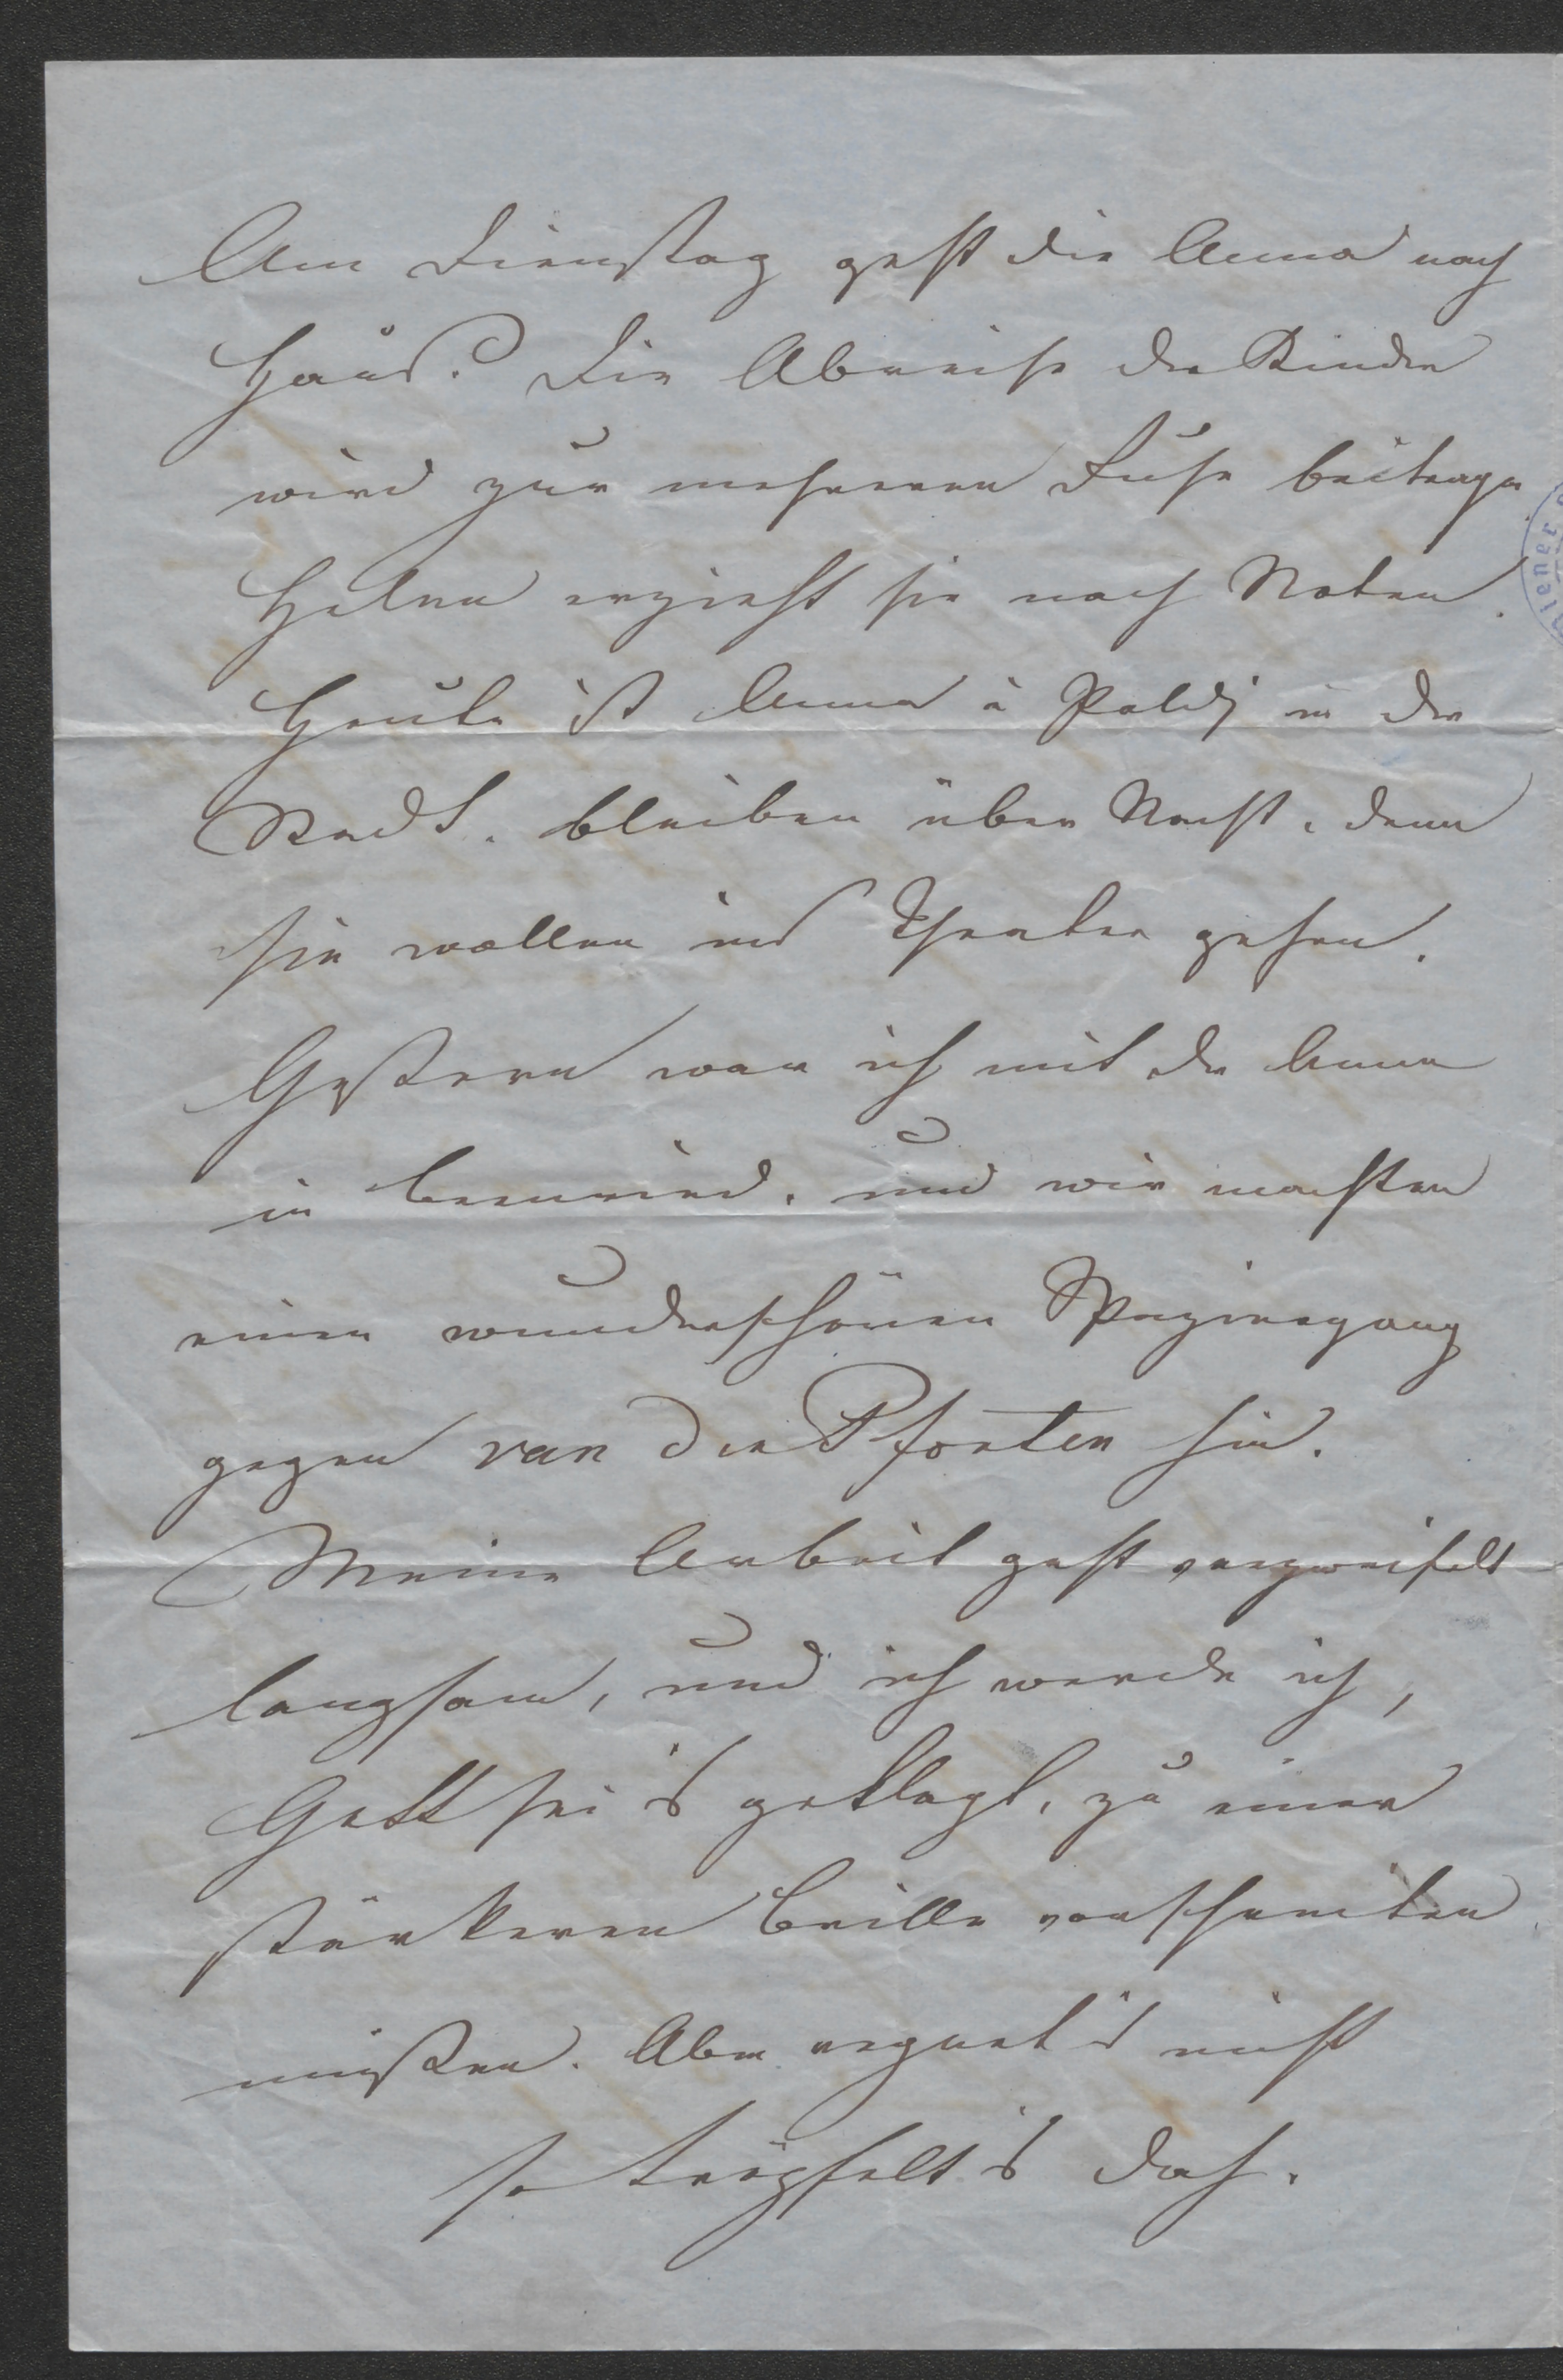 Am Dienstag geht die Anna nach
Haus. Die Abreise der Kinder
wird zur mehreren Ruhe beitragen
Helene erzieht sie nach Noten.
Heute ist Anna u Poldj in der
Stadt. bleiben über Nacht. denn
sie wollen ins Theater gehen.
Gestern war ich mit der Anna
in und wir machten
einen wunderschönen Spaziergang
gegen van der Pforten hin.
Meine Arbeit geht verzweifelt
langsam, und ich werde ich,
Gott sei's geklagt, zu einer
stärkeren Brille vorschreiten
müßen. Aber regnet's nicht
so tröpfelt's doch.
iener